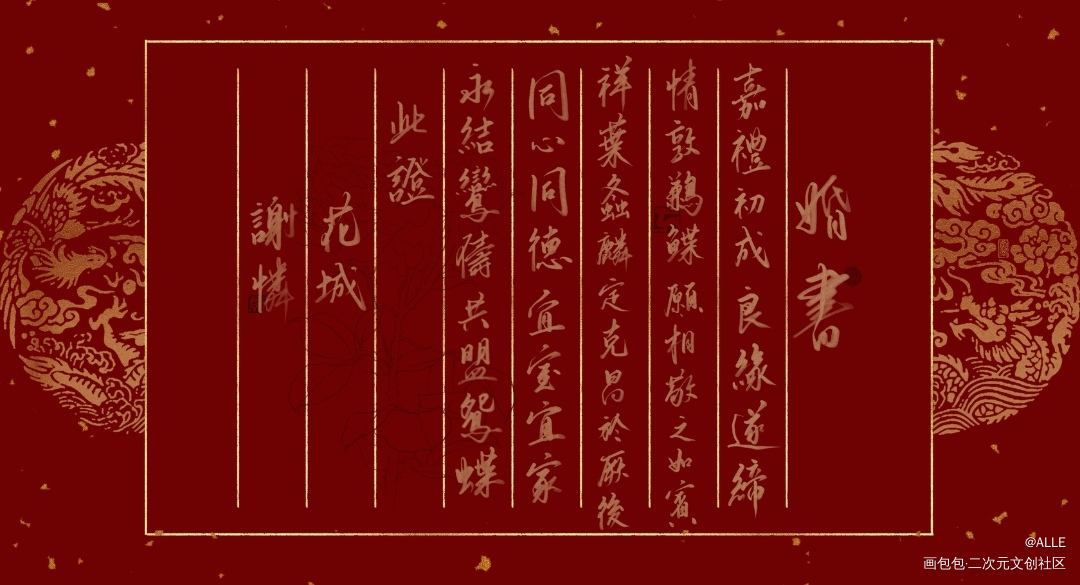 婚書
嘉禮初成良緣遂締
情敦鶼鰈願相敬之如賓
祥葉螽麟定克昌於厥後
同心同德宜室宜家
永結鸞儔共盟鴛蝶
此證
花城
謝憐
@ALLE
画包包·二次元文创社区